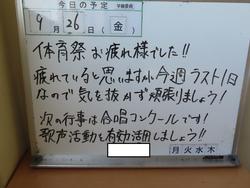 今日の予定
9月26日(金)
体育祭お疲れ様でした!!
疲れていると思いますが今週ラスト1日
なので気を抜かず頑張りましょう!
次の行事は合唱コンクールです!
歌声活動を有効活用しましょう!!
月火水木